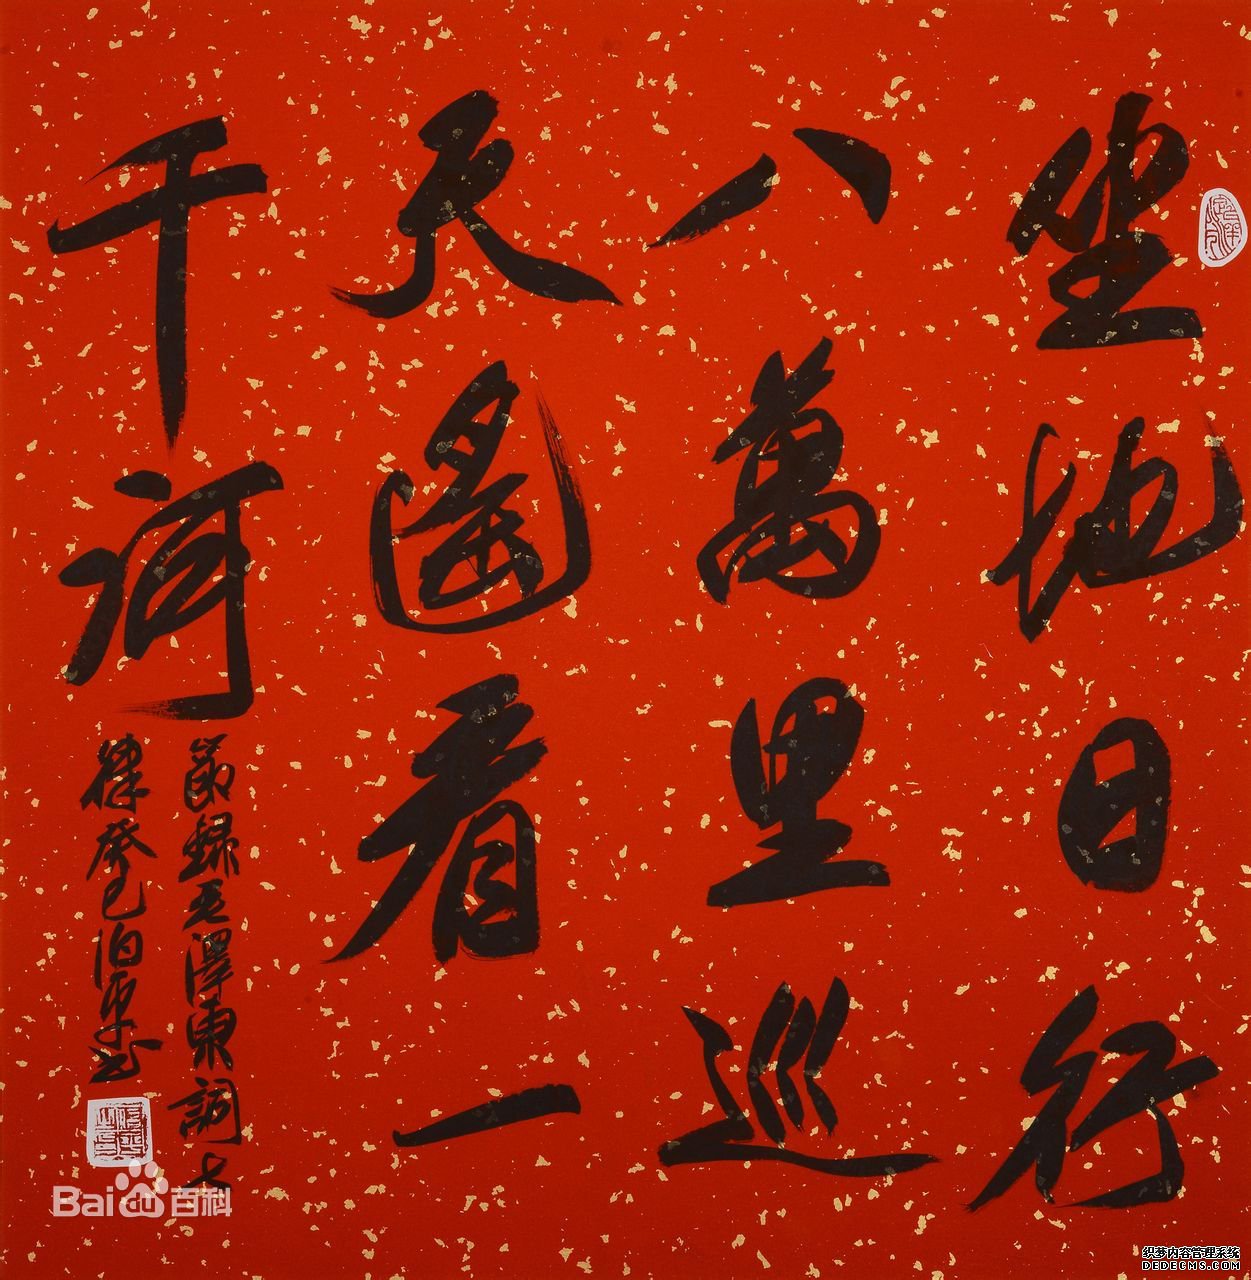 坐地日行
八萬里巡
天遙看一
千河
節錄毛澤東詞七
律癸巳泊书
Bai du 百科
织梦内容管理系统
DEDECMS.COM